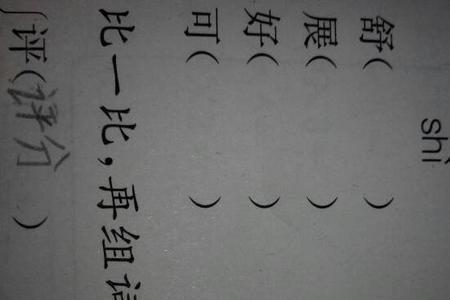 shì
舒(　　)
展(　　)
好(　　)
可(　　)
比一比,再组
评(评价　)